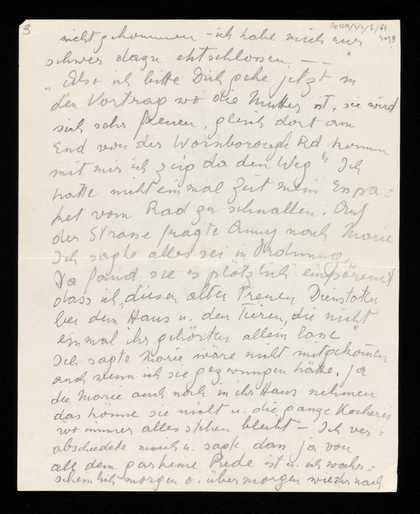 3
nicht gekommen - ich habe mich nur
schwer dazu entschlossen - - "
"Also ich bitte Dich gehe jetzt in
den Vortrag wo die Mutter ist, sie wird
sich sehr freuen, gleich dort am
End von der Wornborough Rd. komm
mit mir ich zeig da den Weg" Ich
hatte nicht einmal Zeit mein Espa=
ket vom Rad zu schnallen. Auf
der Strasse fragte Anny nach Marie
Ich sagte alles sei in Ordnung
Da fand sie es plötzlich empörend
dass ich diesen alten treuen Dienstboten
bei dem Haus u. den Türen, die nicht
einmal ihr gehörten allein lasse"
Ich sagte Marie wäre nicht mitgekommen
auch wenn ich sie gezwungen hätte. Ja
die Marie auch noch in ihr Haus nehmen
das könne sie nicht u. die ganze Kocherei
wo immer alles stehen bleibt - Ich ver=
abschiedete mich u. sagte dass ja von
all dem gar keine Rede ist u. ich wahr=
scheinlich morgen o. übermorgen wieder nach